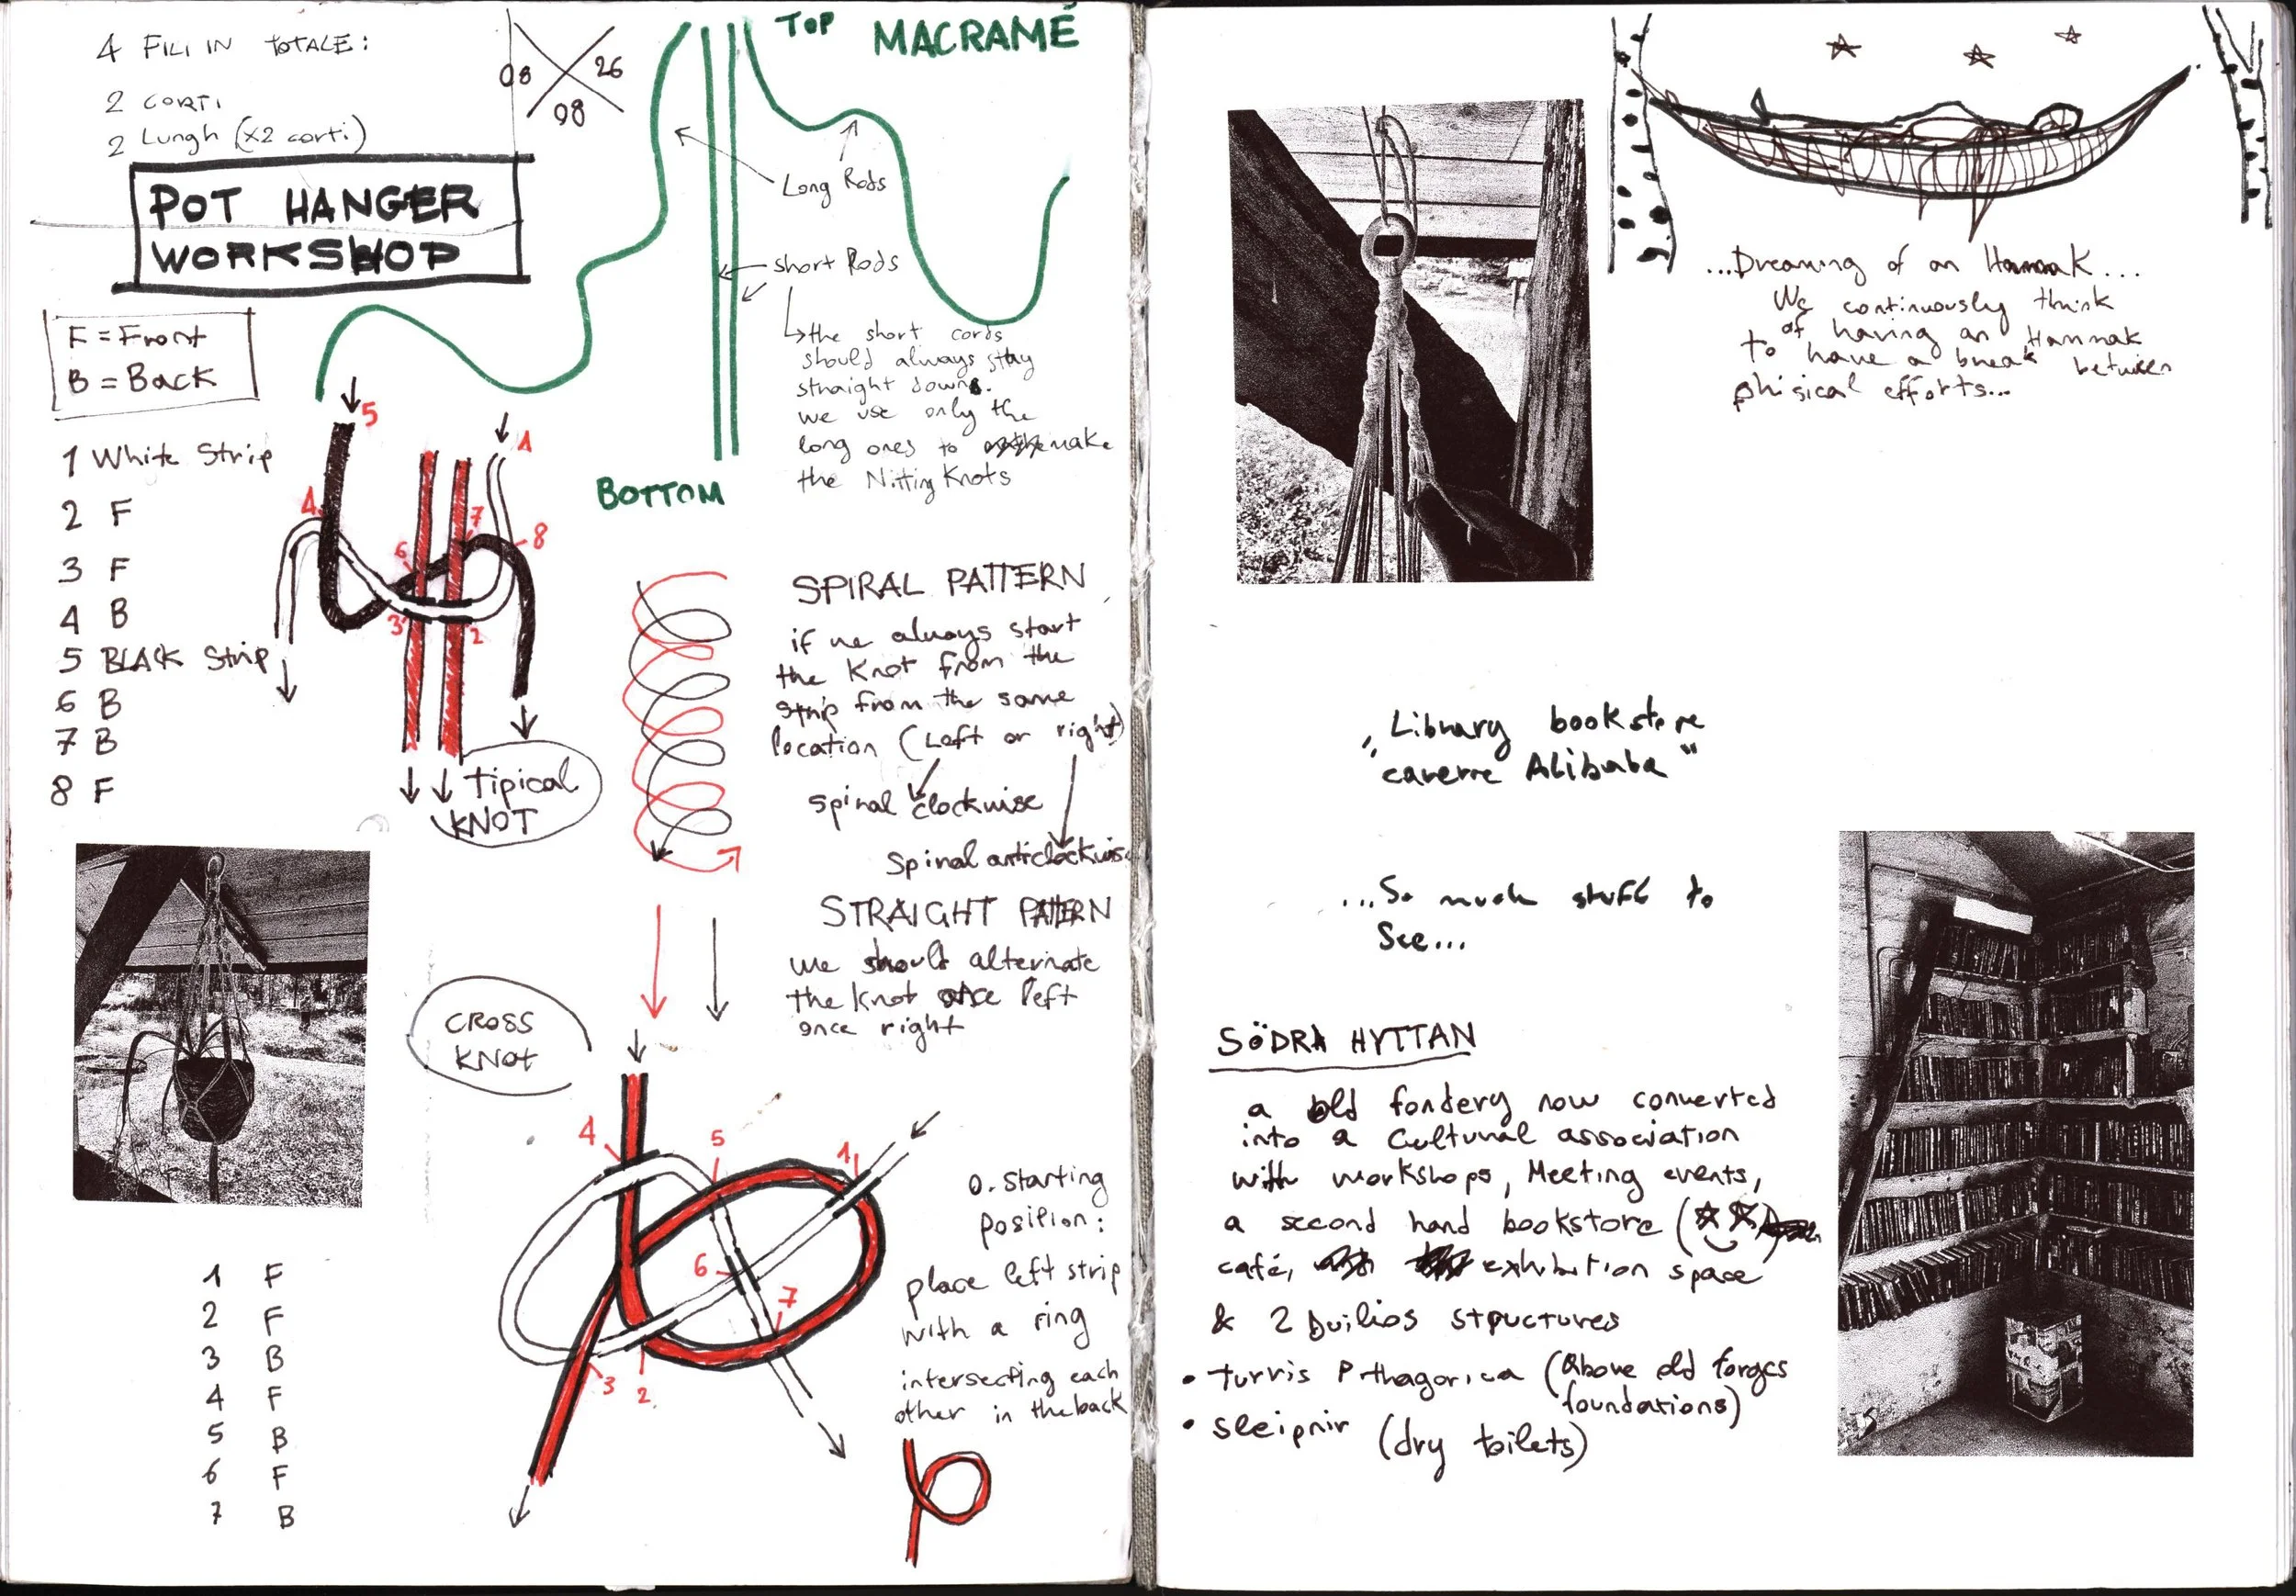 4 FILI IN TOTALE:
2 CORTI
2 Lungh (x2 corti)
08 26
98
TOP
MACRAMÉ
POT HANGER
WORKSHOP
F = Front
B = Back
Long Rods
short Rods
the short cords
should always stay
straight down.
we use only the
long ones to make
the Nitting Knots
BOTTOM
1 White Strip
2 F
3 F
4 B
5 BLACK Strip
6 B
7 B
8 F
5
1
4
7
8
6
3
2
Tipical
KNOT
SPIRAL PATTERN
if we always start
the Knot from the
strip from the same
location (Left or right)
spiral clockwise
Spiral anticlockwise
STRAIGHT PATTERN
we should alternate
the knot once left
once right
CROSS
KNOT
4
5
1
6
7
3
2
0. Starting
position:
place left strip
with a ring
intersecting each
other in the back
1 F
2 F
3 B
4 F
5 B
6 F
7 B
...Dreaming of an Hammak...
We continuously think
of having an Hammak
to have a break between
phisical efforts...
Library bookstore
"caverne Alibaba"
...So much stuff to
See...
SÖDRA HYTTAN
a old fondery now converted
into a Cultural association
with workshops, Meeting events,
a second hand bookstore
café, exhibition space
& 2 Duilios structures
• turris Pithagorica (Above old forges
foundations)
• sleipnir (dry toilets)